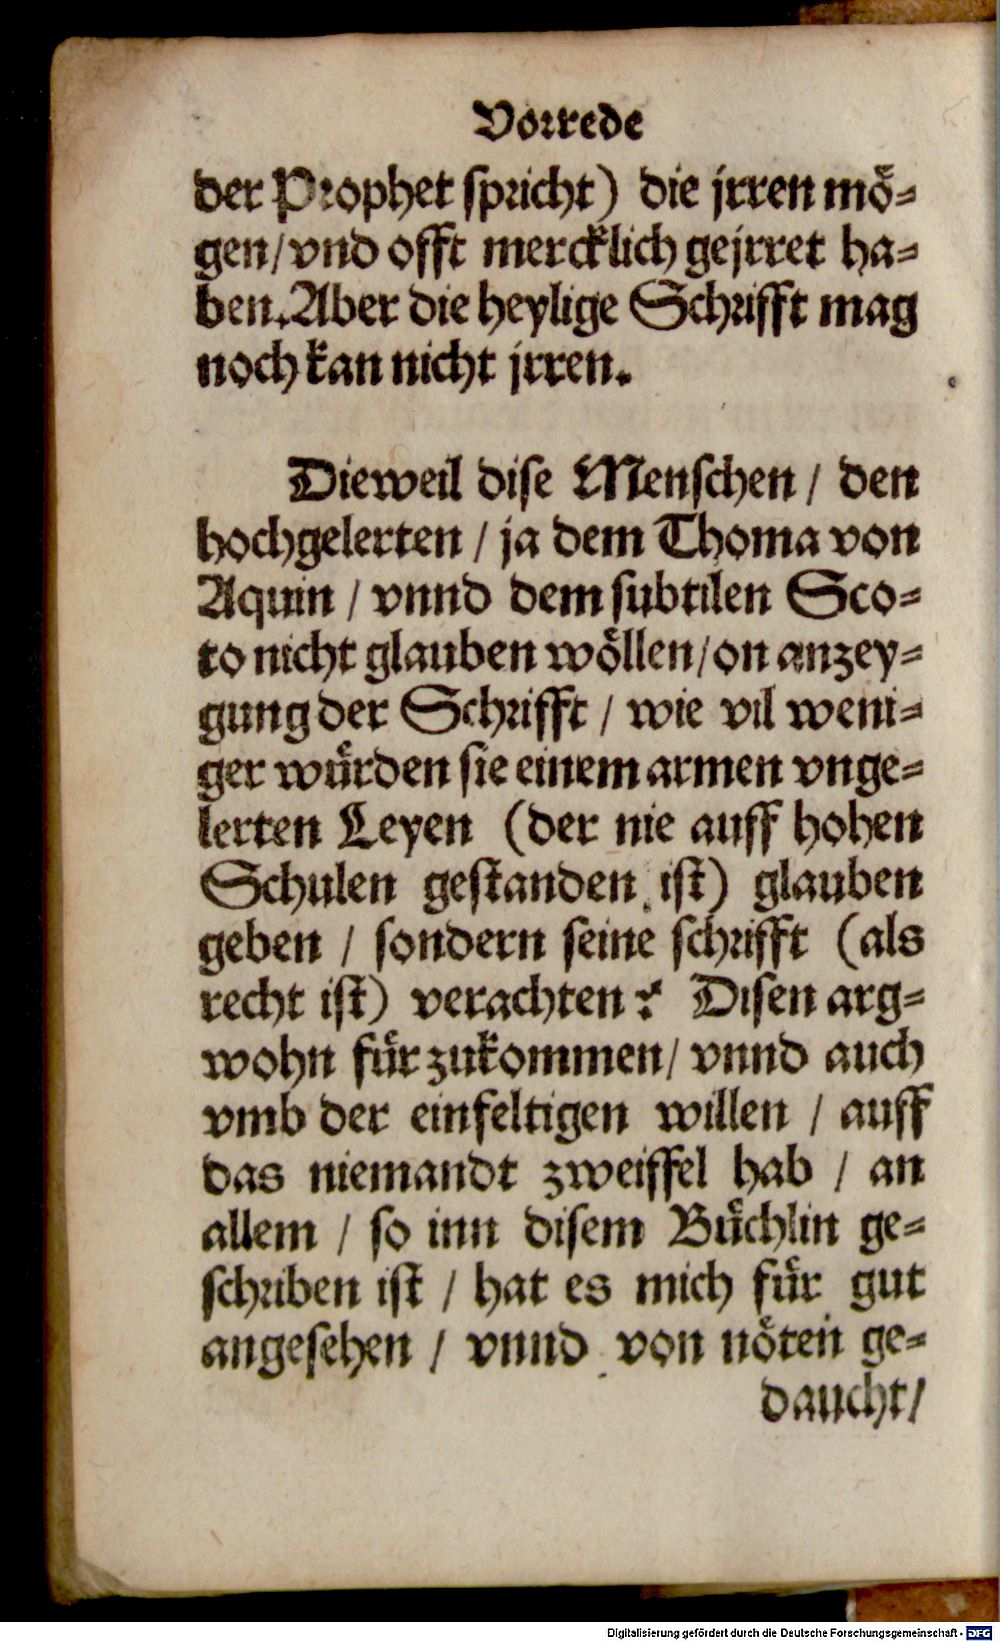 Vorrede
der Prophet spricht) die jrren mö-
gen/vnd offt mercklich gejrret ha-
ben. Aber die heylige Schrifft mag
noch kan nicht jrren.
Dieweil dise Menschen / den
hochgelerten / ja dem Thoma von
Aquin / vnnd dem subtilen Sco-
to nicht glauben wöllen/on anzey-
gung der Schrifft / wie vil weni-
ger würden sie einem armen vnge-
lerten Leyen (der nie auff hohen
Schulen gestanden ist) glauben
geben / sondern seine schrifft (als
recht ist) verachten? Disen arg-
wohn für zukommen/ vnnd auch
vmb der einfeltigen willen / auff
das niemandt zweiffel hab / an
allem / so inn disem Büchlin ge-
schriben ist / hat es mich für gut
angesehen / vnnd von nöten ge-
daucht/
Digitalisierung gefördert durch die Deutsche Forschungsgemeinschaft - DFG